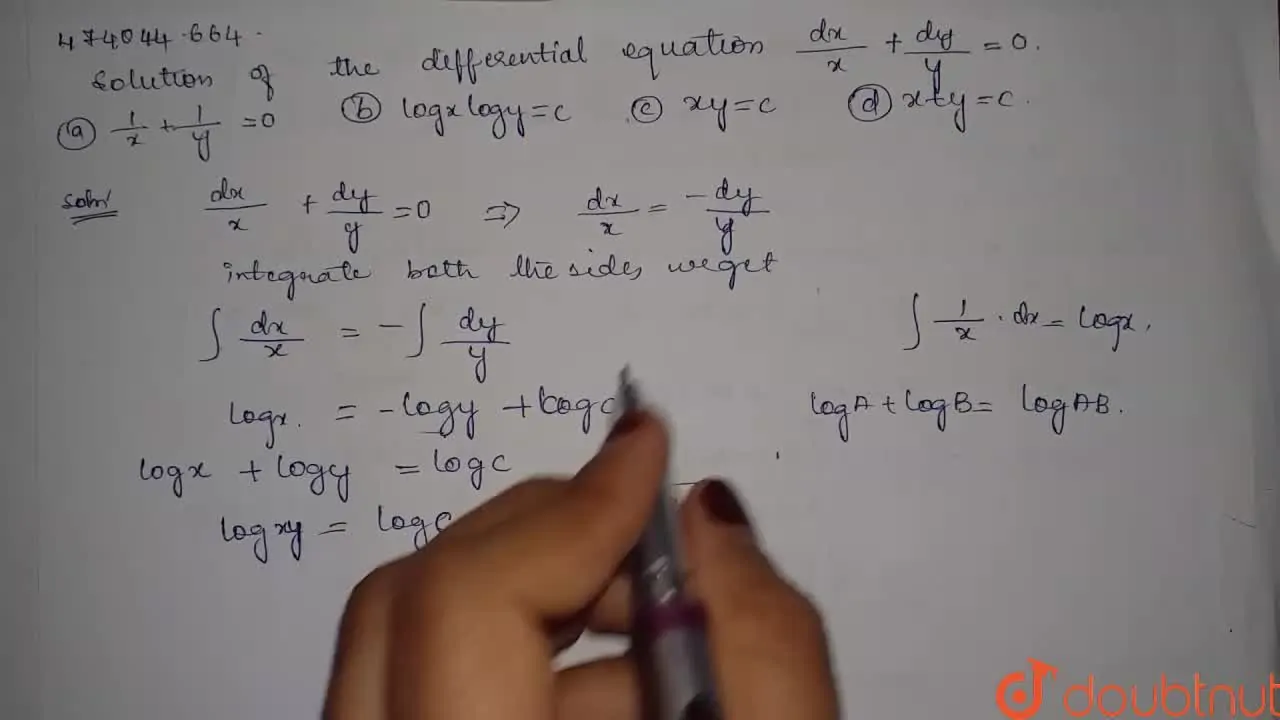 474044.664.
Solution of the defferential equation dx/x + dy/y = 0.
(a) 1/x + 1/y = 0 (b) logx logy = c (c) xy = c (d) x+y = c.
Soln/ dx/x + dy/y = 0 ⇒ dx/x = -dy/y
integrate both the sides we get
∫ dx/x = -∫ dy/y ∫ 1/x . dx = logx.
logx. = -logy + logc logA + logB = logAB.
logx + logy = logc
logxy = logc
doubtnut